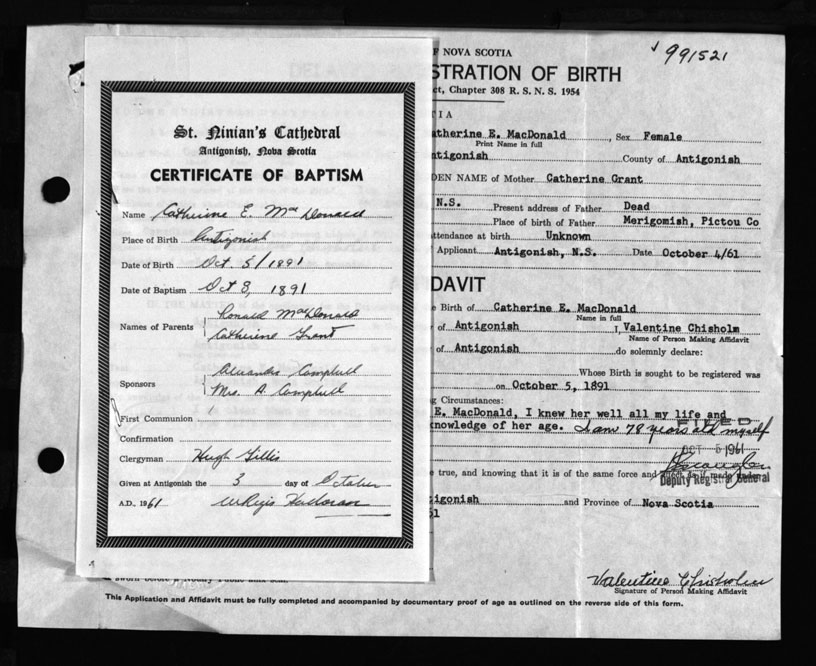 St. Ninian's Cathedral
Antigonish, Nova Scotia
CERTIFICATE OF BAPTISM
Name Catherine E. MacDonald
Place of Birth Antigonish
Date of Birth Oct. 5/1891
Date of Baptism Oct 8, 1891
Names of Parents Ronald MacDonald
Catherine Grant
Sponsors Campbell
Mrs. A. Campbell
First Communion
Confirmation
Clergyman Hugh Gillis
Given at Antigonish the 3 day of October
A.D. 1961
F NOVA SCOTIA
991521
STRATION OF BIRTH
ct, Chapter 308 R. S. N. S. 1954
TIA
atherine E. MacDonald, Sex Female
Print Name in full
ntigonish County of Antigonish
DEN NAME of Mother Catherine Grant
N.S. Present address of Father Dead
Place of birth of Father Merigomish, Pictou Co
ttendance at birth Unknown
f Applicant Antigonish, N.S. Date October 4/61
DAVIT
e Birth of Catherine E. MacDonald
Name in full
of Antigonish I, Valentine Chisholm
Name of Person Making Affidavit
of Antigonish do solemnly declare:
Whose Birth is sought to be registered was
on October 5, 1891
ng Circumstances:
E. MacDonald, I knew her well all my life and
nowledge of her age. I am 78 years old myself
FILED
OCT 5 1961
e true, and knowing that it is of the same force and
Deputy Registrar General
tigonish and Province of Nova Scotia
61
Valentine Chisholm
Signature of Person Making Affidavit
This Application and Affidavit must be fully completed and accompanied by documentary proof of age as outlined on the reverse side of this form.